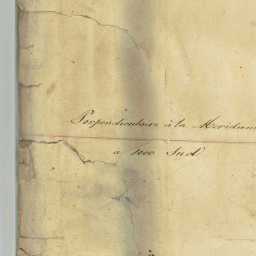 Perpendiculaire à la Meridienn
a 1000 Sud